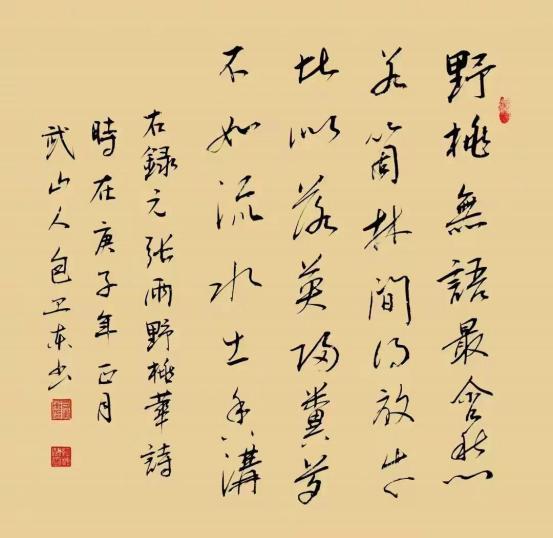 野桃無語最含愁
若箇林間得放
比似落英歸糞
不如流水香溝
右録元張雨野桃華詩
時在庚子年正月
武山人包卫東书